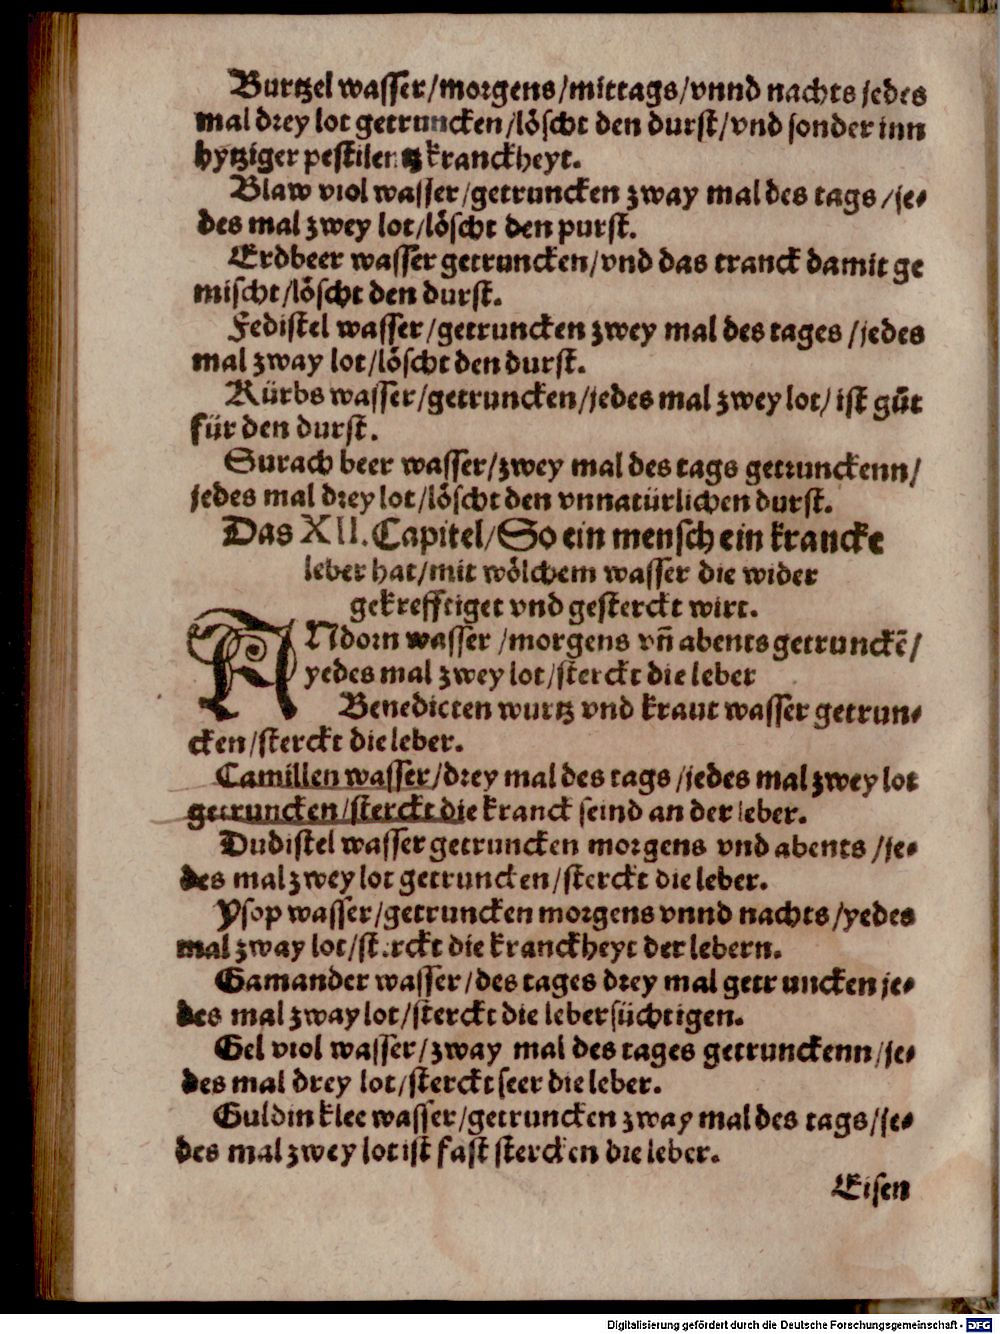 Burtzel wasser/morgens/mittags/vnnd nachts jedes
mal drey lot getruncken/löscht den durst/vnd sonder inn
hytziger pestilentz kranckheyt.
Blaw viol wasser/getruncken zway mal des tags/je⸗
des mal zwey lot/löscht den purst.
Erdbeer wasser getruncken/vnd das tranck damit ge
mischt/löscht den durst.
Fedistel wasser/getruncken zwey mal des tages/jedes
mal zway lot/löscht den durst.
Kürbs wasser/getruncken/jedes mal zwey lot/ist gůt
für den durst.
Surach beer wasser/zwey mal des tags getrunckenn/
jedes mal drey lot/löscht den vnnatürlichen durst.
Das XII. Capitel/So ein mensch ein krancke
leber hat/mit wölchem wasser die wider
gekrefftiget vnd gesterckt wirt.
ANdorn wasser/morgens vñ abents getrunckẽ/
yedes mal zwey lot/sterckt die leber
Benedicten wurtz vnd kraut wasser getrun⸗
cken/sterckt die leber.
Camillen wasser/drey mal des tags/jedes mal zwey lot
getruncken/sterckt die kranck seind an der leber.
Dudistel wasser getruncken morgens vnd abents/je⸗
des mal zwey lot getruncken/sterckt die leber.
Ysop wasser/getruncken morgens vnnd nachts/yedes
mal zway lot/sterckt die kranckheyt der lebern.
Gamander wasser/des tages drey mal getruncken je⸗
des mal zway lot/sterckt die lebersüchtigen.
Gel viol wasser/zway mal des tages getrunckenn/je⸗
des mal drey lot/sterckt seer die leber.
Guldin klee wasser/getruncken zway mal des tags/je⸗
des mal zwey lot ist fast stercken die leber.
Eisen
Digitalisierung gefördert durch die Deutsche Forschungsgemeinschaft - DFG